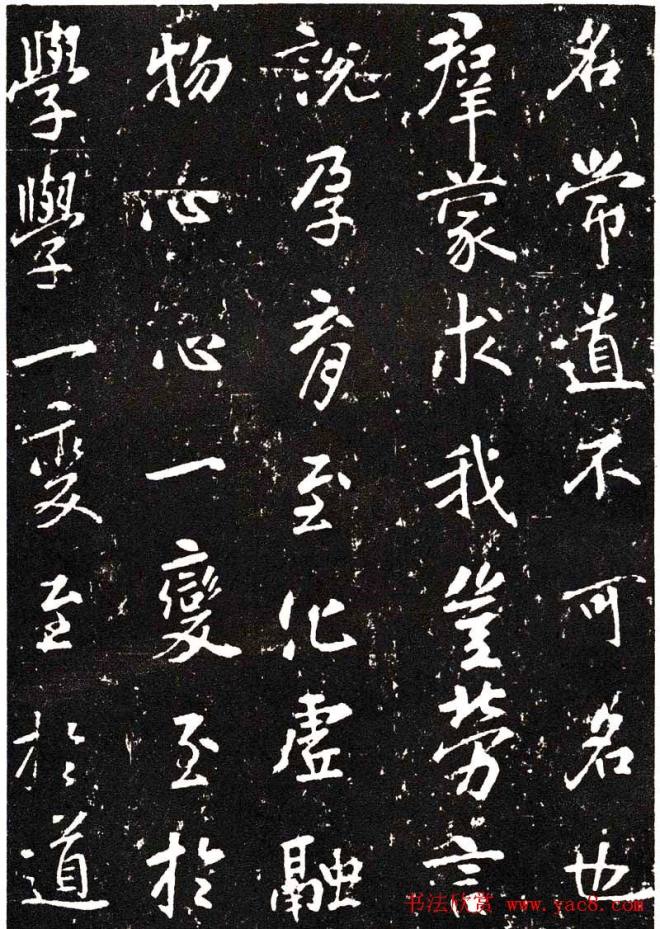 名常道不可名也
羣蒙求我豈勞言
說孕育至化虛融
物心心一變至於
學學一變至於道
书法欣赏 www.yac8.com